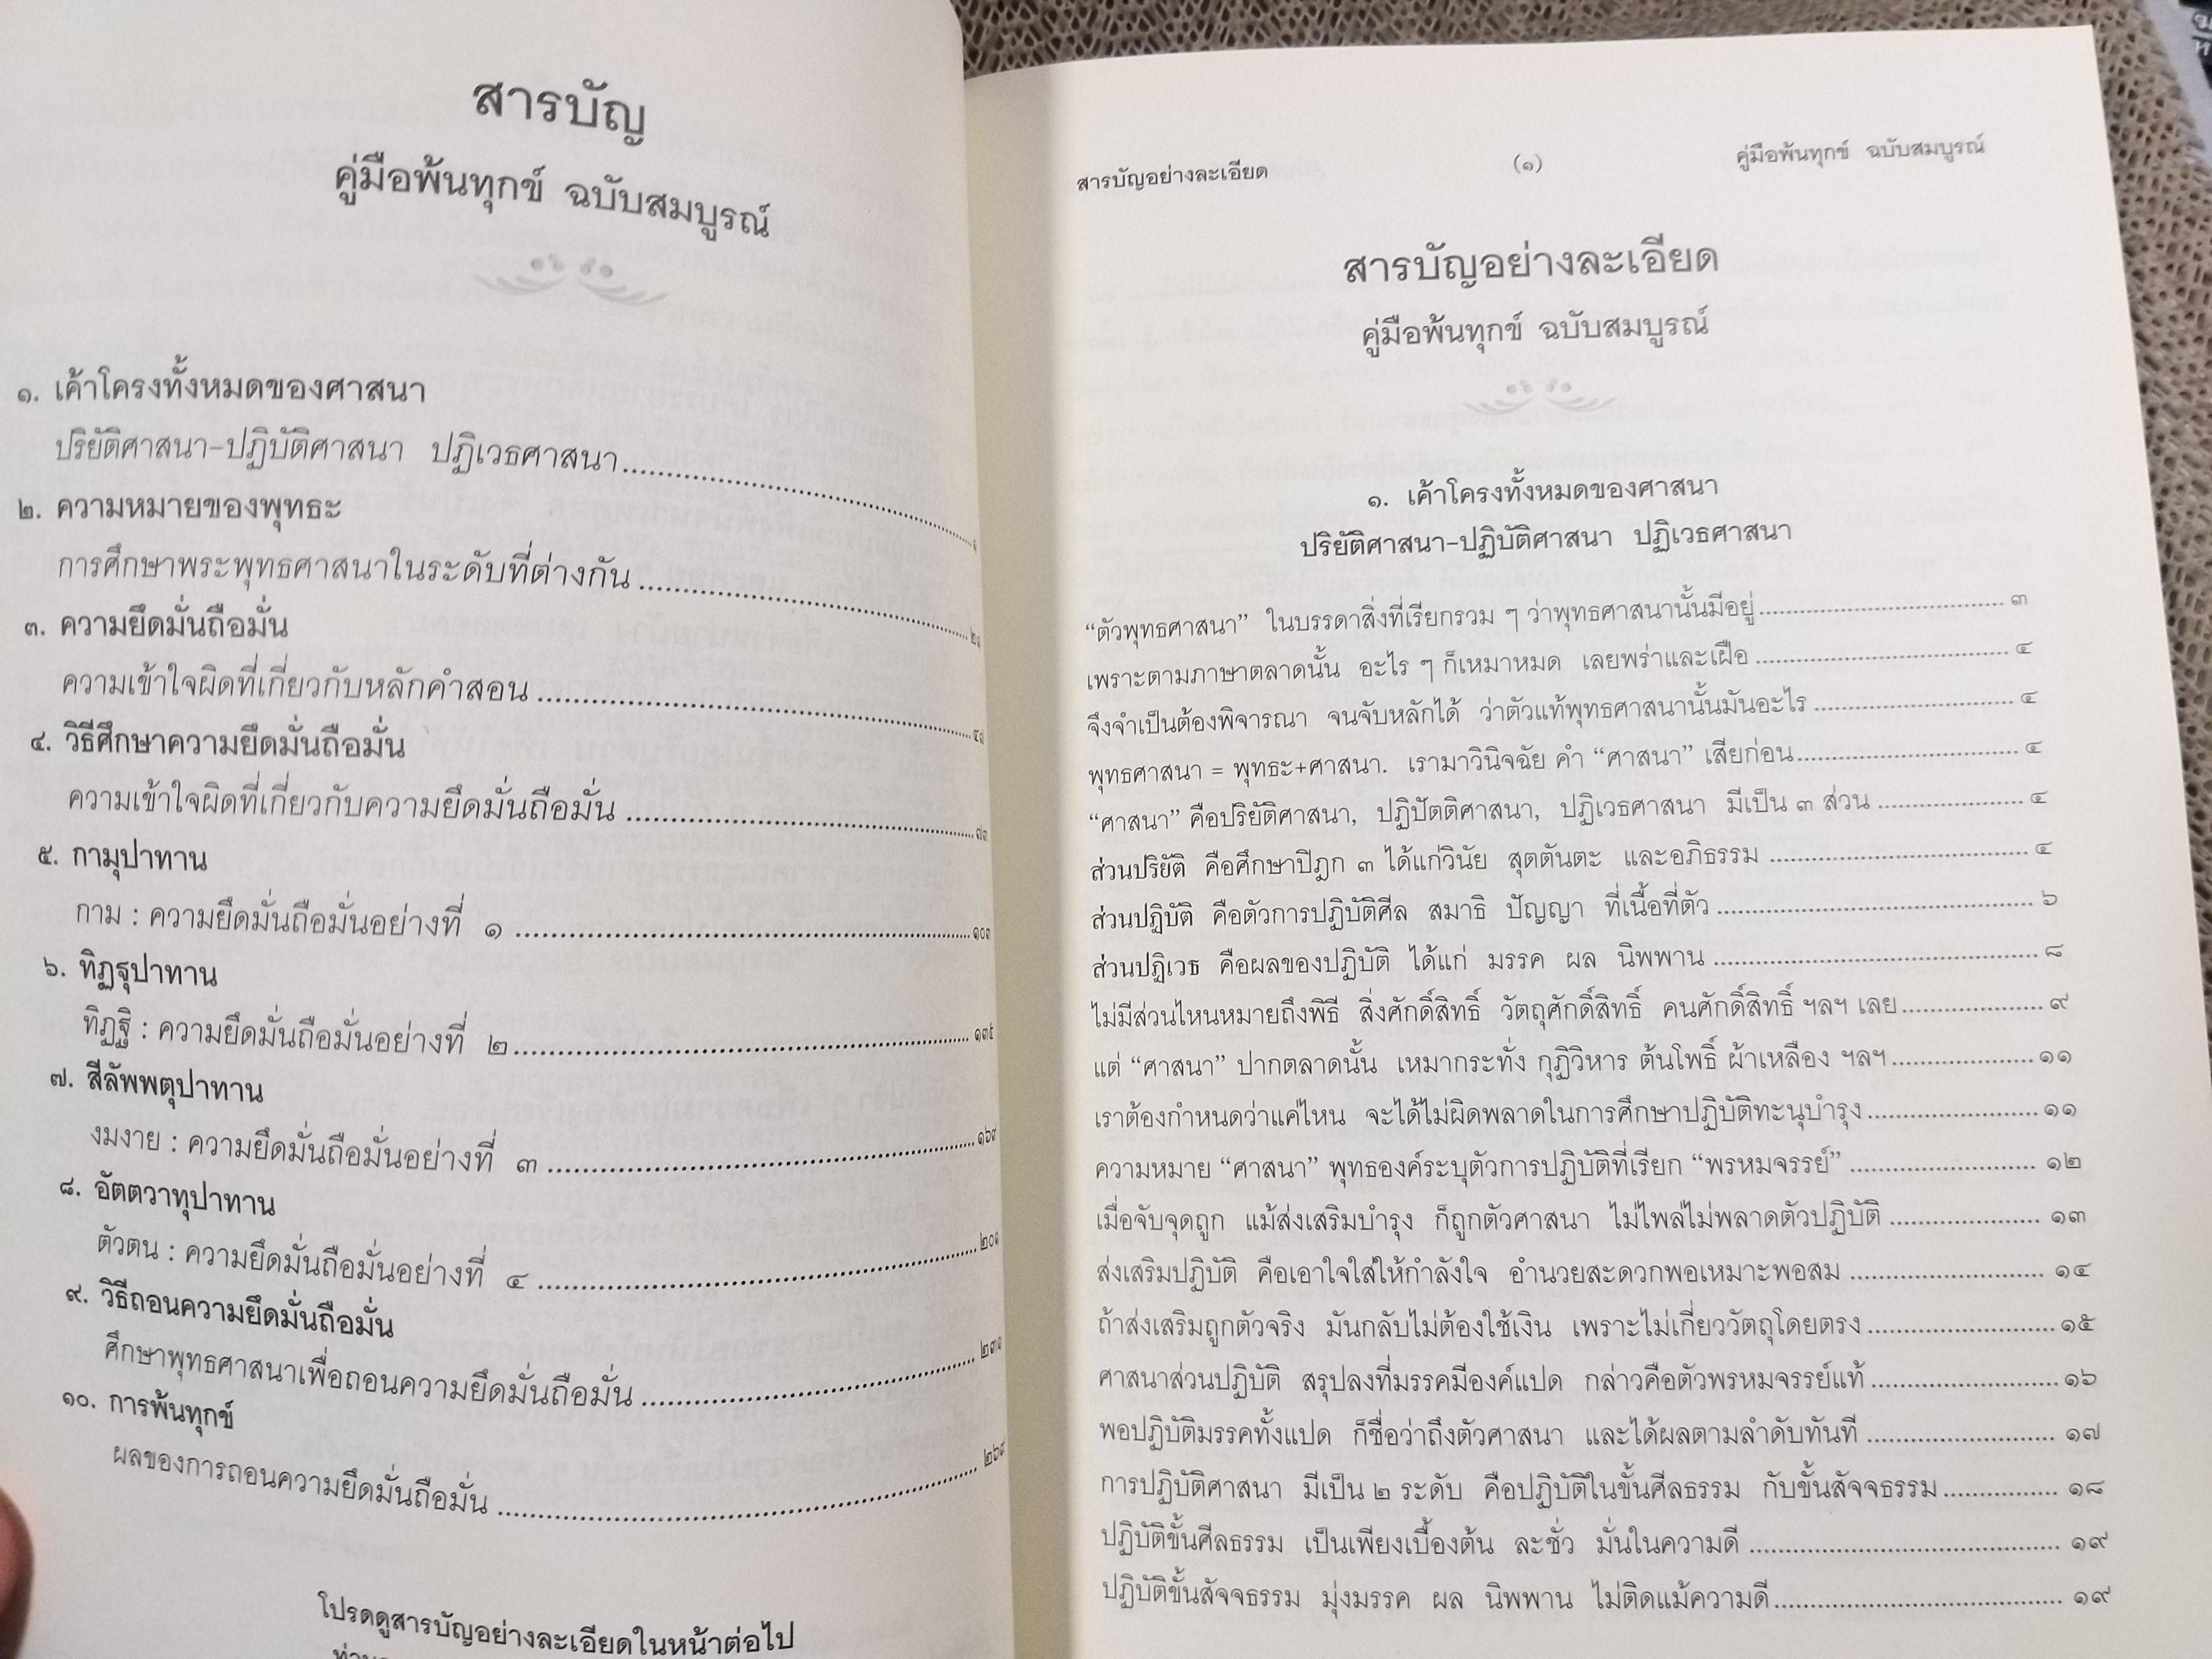 สารบัญ
คู่มือพ้นทุกข์ ฉบับสมบูรณ์
๑. เค้าโครงทั้งหมดของศาสนา
ปริยัติศาสนา-ปฏิบัติศาสนา ปฏิเวธศาสนา....................๑
๒. ความหมายของพุทธะ
การศึกษาพระพุทธศาสนาในระดับที่ต่างกัน....................๒๑
๓. ความยึดมั่นถือมั่น
ความเข้าใจผิดที่เกี่ยวกับหลักคำสอน....................
๔. วิธีศึกษาความยึดมั่นถือมั่น
ความเข้าใจผิดที่เกี่ยวกับความยึดมั่นถือมั่น....................๗๓
๕. กามุปาทาน
กาม : ความยึดมั่นถือมั่นอย่างที่ ๑....................๑๐๓
๖. ทิฏฐุปาทาน
ทิฏฐิ : ความยึดมั่นถือมั่นอย่างที่ ๒....................๑๓๕
๗. สีลัพพตุปาทาน
งมงาย : ความยึดมั่นถือมั่นอย่างที่ ๓....................๑๖๙
๘. อัตตวาทุปาทาน
ตัวตน : ความยึดมั่นถือมั่นอย่างที่ ๔....................๒๐๑
๙. วิธีถอนความยึดมั่นถือมั่น
ศึกษาพุทธศาสนาเพื่อถอนความยึดมั่นถือมั่น....................๒๓๑
๑๐. การพ้นทุกข์
ผลของการถอนความยึดมั่นถือมั่น....................๒๖๙
โปรดดูสารบัญอย่างละเอียดในหน้าต่อไป
สารบัญอย่างละเอียด (๑) คู่มือพ้นทุกข์ ฉบับสมบูรณ์
สารบัญอย่างละเอียด
คู่มือพ้นทุกข์ ฉบับสมบูรณ์
๑. เค้าโครงทั้งหมดของศาสนา
ปริยัติศาสนา-ปฏิบัติศาสนา ปฏิเวธศาสนา
“ตัวพุทธศาสนา” ในบรรดาสิ่งที่เรียกรวม ๆ ว่าพุทธศาสนานั้นมีอยู่....................๓
เพราะตามภาษาตลาดนั้น อะไร ๆ ก็เหมาหมด เลยพร่าและเฝือ....................๔
จึงจำเป็นต้องพิจารณา จนจับหลักได้ ว่าตัวแท้พุทธศาสนานั้นมันอะไร....................๔
พุทธศาสนา = พุทธะ+ศาสนา. เรามาวินิจฉัย คำ “ศาสนา” เสียก่อน....................๔
“ศาสนา” คือปริยัติศาสนา, ปฏิปัตติศาสนา, ปฏิเวธศาสนา มีเป็น ๓ ส่วน....................๔
ส่วนปริยัติ คือศึกษาปิฎก ๓ ได้แก่วินัย สุตตันตะ และอภิธรรม....................๔
ส่วนปฏิบัติ คือตัวการปฏิบัติศีล สมาธิ ปัญญา ที่เนื้อที่ตัว....................๖
ส่วนปฏิเวธ คือผลของปฏิบัติ ได้แก่ มรรค ผล นิพพาน....................๘
ไม่มีส่วนไหนหมายถึงพิธี สิ่งศักดิ์สิทธิ์ วัตถุศักดิ์สิทธิ์ คนศักดิ์สิทธิ์ ฯลฯ เลย....................๙
แต่ “ศาสนา” ปากตลาดนั้น เหมากระทั่ง กุฏิวิหาร ต้นโพธิ์ ผ้าเหลือง ฯลฯ....................๑๑
เราต้องกำหนดว่าแค่ไหน จะได้ไม่ผิดพลาดในการศึกษาปฏิบัติทะนุบำรุง....................๑๑
ความหมาย “ศาสนา” พุทธองค์ระบุตัวการปฏิบัติที่เรียก “พรหมจรรย์”....................๑๒
เมื่อจับจุดถูก แม้ส่งเสริมบำรุง ก็ถูกตัวศาสนา ไม่ไพล่ไม่พลาดตัวปฏิบัติ....................๑๓
ส่งเสริมปฏิบัติ คือเอาใจใส่ให้กำลังใจ อำนวยสะดวกพอเหมาะพอสม....................๑๔
ถ้าส่งเสริมถูกตัวจริง มันกลับไม่ต้องใช้เงิน เพราะไม่เกี่ยววัตถุโดยตรง....................๑๕
ศาสนาส่วนปฏิบัติ สรุปลงที่มรรคมีองค์แปด กล่าวคือตัวพรหมจรรย์แท้....................๑๖
พอปฏิบัติมรรคทั้งแปด ก็ชื่อว่าถึงตัวศาสนา และได้ผลตามลำดับทันที....................๑๗
การปฏิบัติศาสนา มีเป็น ๒ ระดับ คือปฏิบัติในขั้นศีลธรรม กับขั้นสัจจธรรม....................๑๘
ปฏิบัติขั้นศีลธรรม เป็นเพียงเบื้องต้น ละชั่ว มั่นในความดี....................๑๙
ปฏิบัติขั้นสัจจธรรม มุ่งมรรค ผล นิพพาน ไม่ติดแม้ความดี....................๑๙